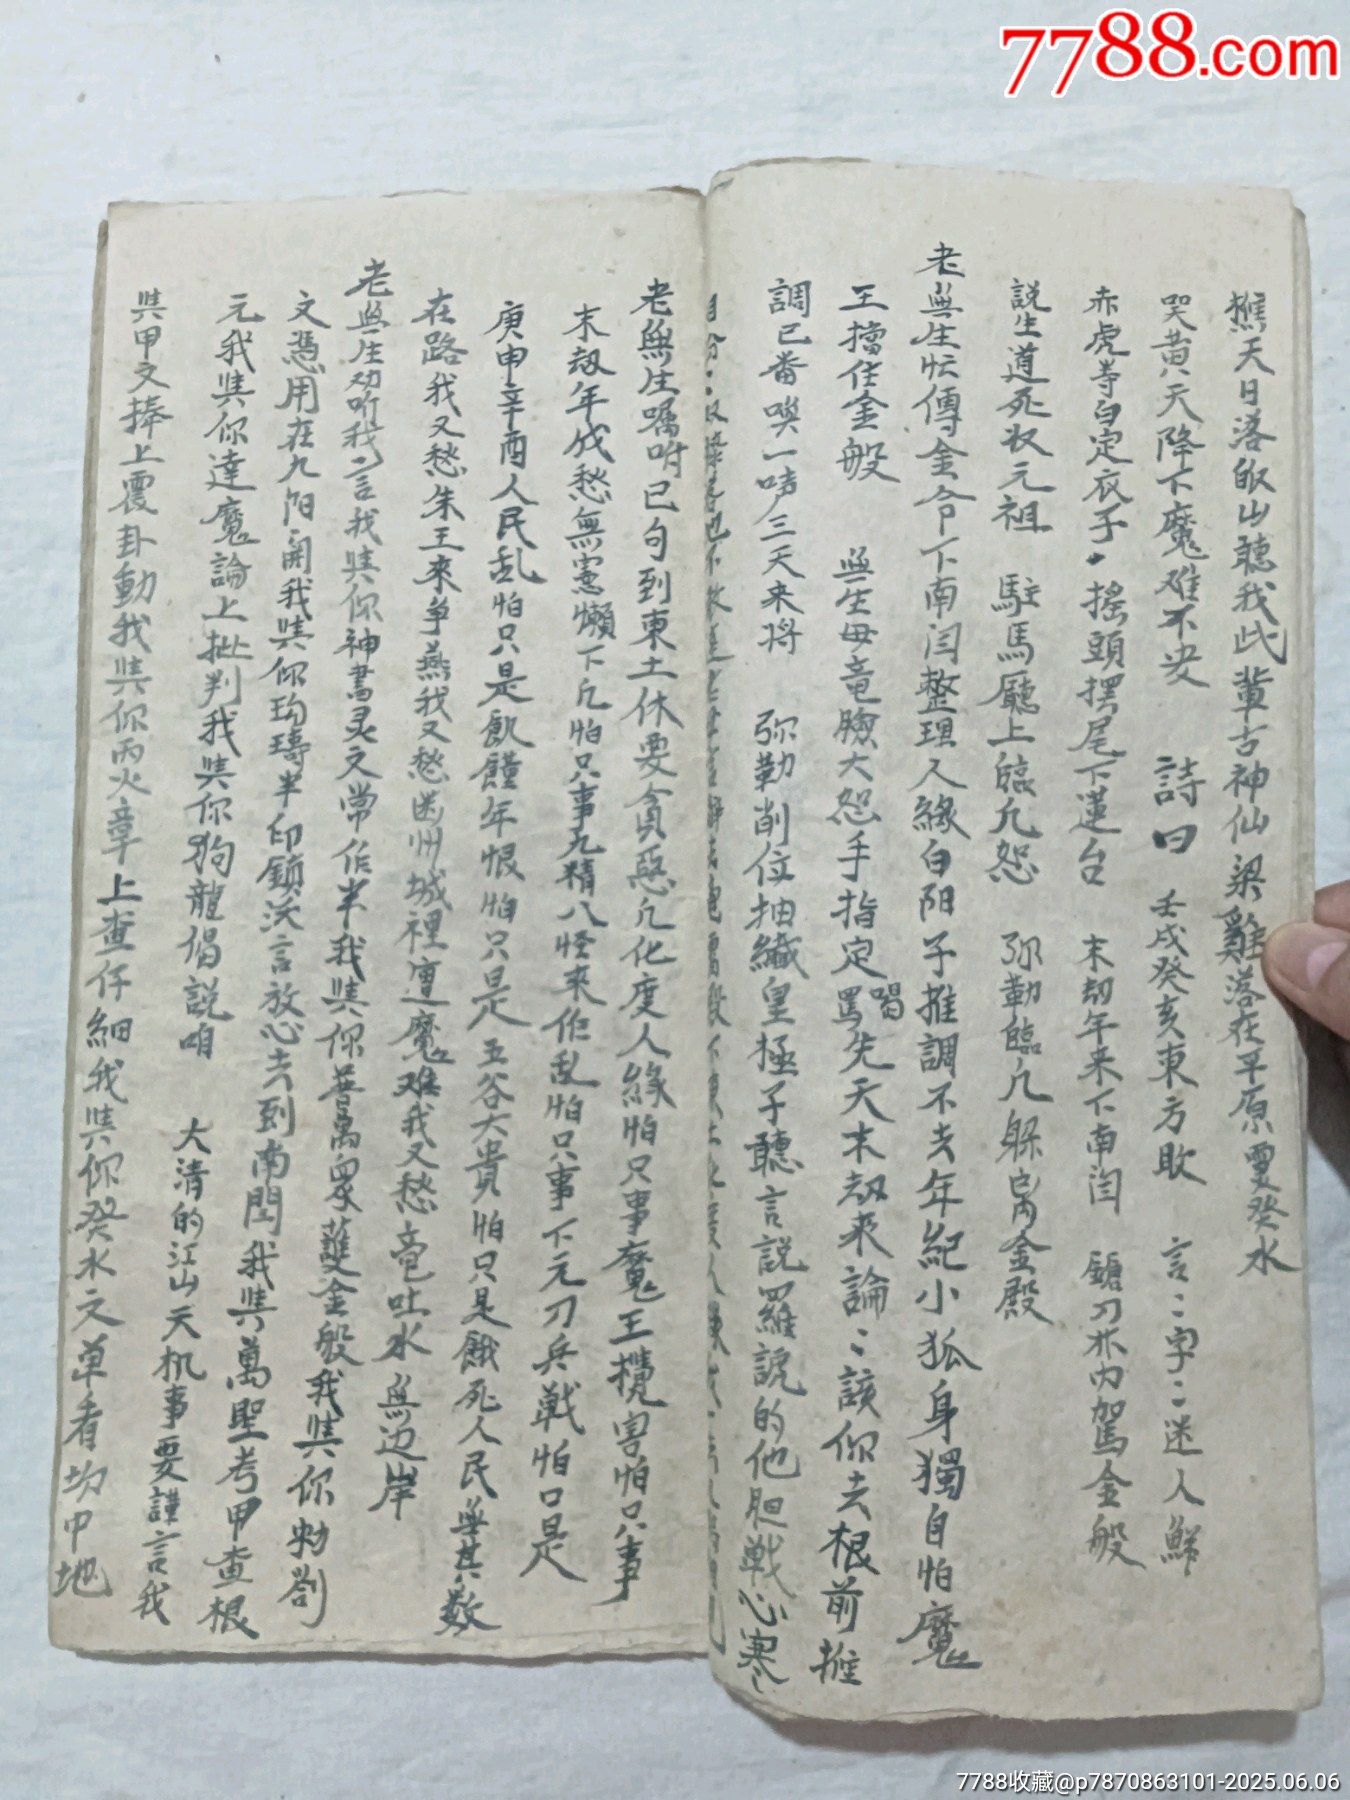 7788.com
天日落的山聽我此輩古神仙梁雞落在平原要癸水
哭黄天降下魔难不安 詩曰 壬戌癸亥東方敗 言言字字迷人鲜
赤虎寺白定衣子搖頭摆尾下蓮台 末劫年来下南闫 鎗刀林内駕金般
説生道死状元祖 駐馬廳上臨凢怒 弥勒臨凢躲离金殿
老無生忙傳金令下南闫整理人緣白阳子推調不去年紀小狐身獨自怕魔
王擋住金般 無生母竜臉大怒手指定罵喝先天末劫来論論該你去根前推
調已畨唤一声三天来将 弥勒削位抽纖皇極子聽言説羅説的他胆戦心寒
老無生嘱咐已句到東土休要貪惡凢化度人緣怕只事魔王攪害怕只事
末劫年成愁無憲懒下凢怕只事九精八怪来作乱怕只事下元刀兵戦怕只是
庚申辛酉人民乱怕只是飢饉年恨怕只是五谷大貴怕只是餓死人民無其数
在路我又愁朱王来争燕我又愁幽州城裡遭魔难我又愁竜吐水無边岸
老無生劝咐我言我與你神書灵文常作半我與你普萬衆蘆金般我與你勅劄
文憑用在九阳開我與你珣璹半印鎖沃言放心去到南閆我與萬聖考甲查根
元我與你達魔論上批判我與你狗龍偈説咱 大清的江山天机事要謹言我
與甲文捧上震卦動我與你丙火章上查仔細我與你癸水文单看坎中地
7788收藏@p7870863101-2025.06.06